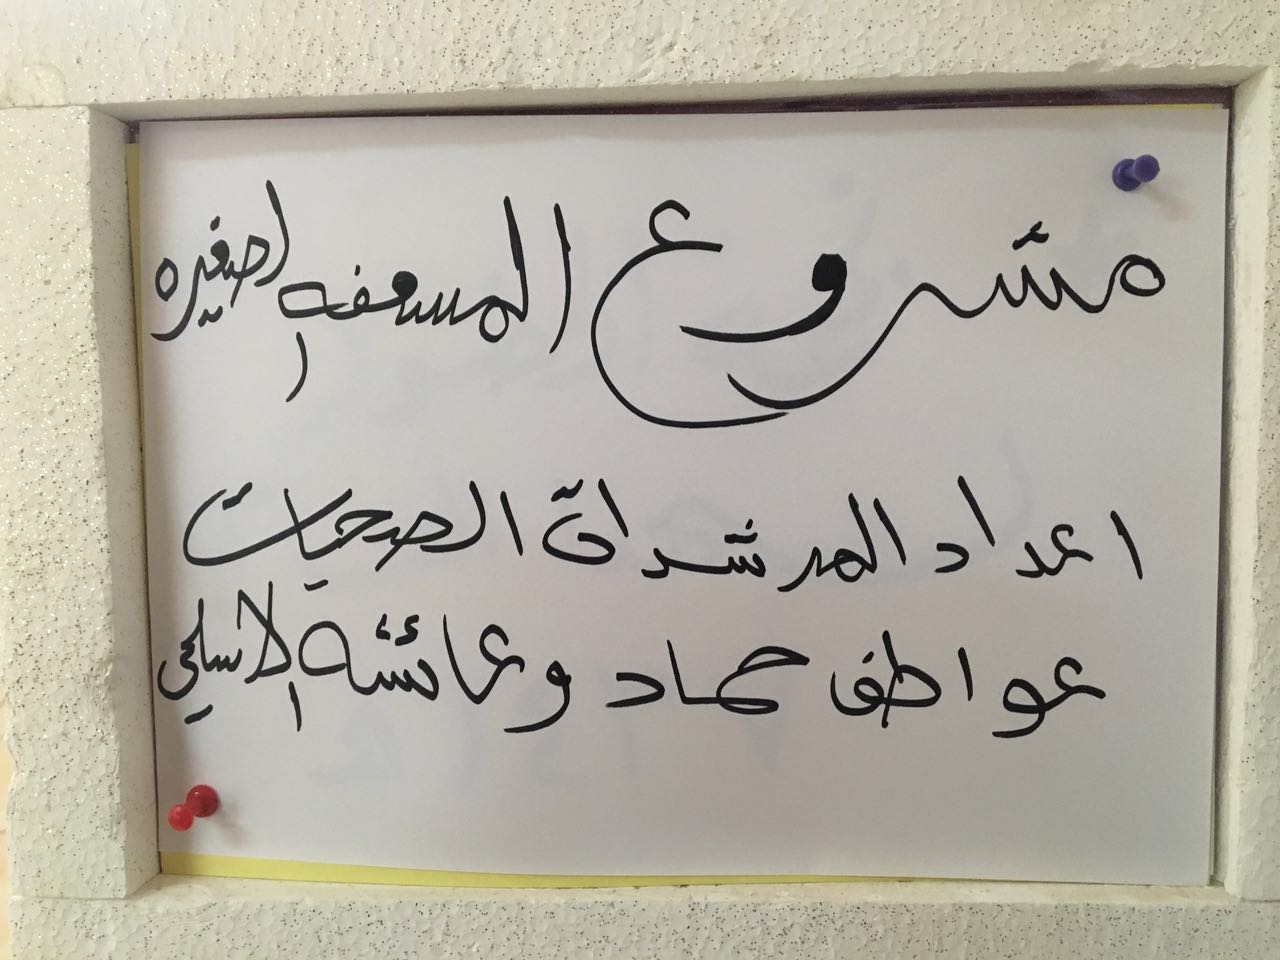 مشروع المسعفه الصغيره
اعداد المرشدات الصحيات
عواطف حماد وعائشه الاسلمي